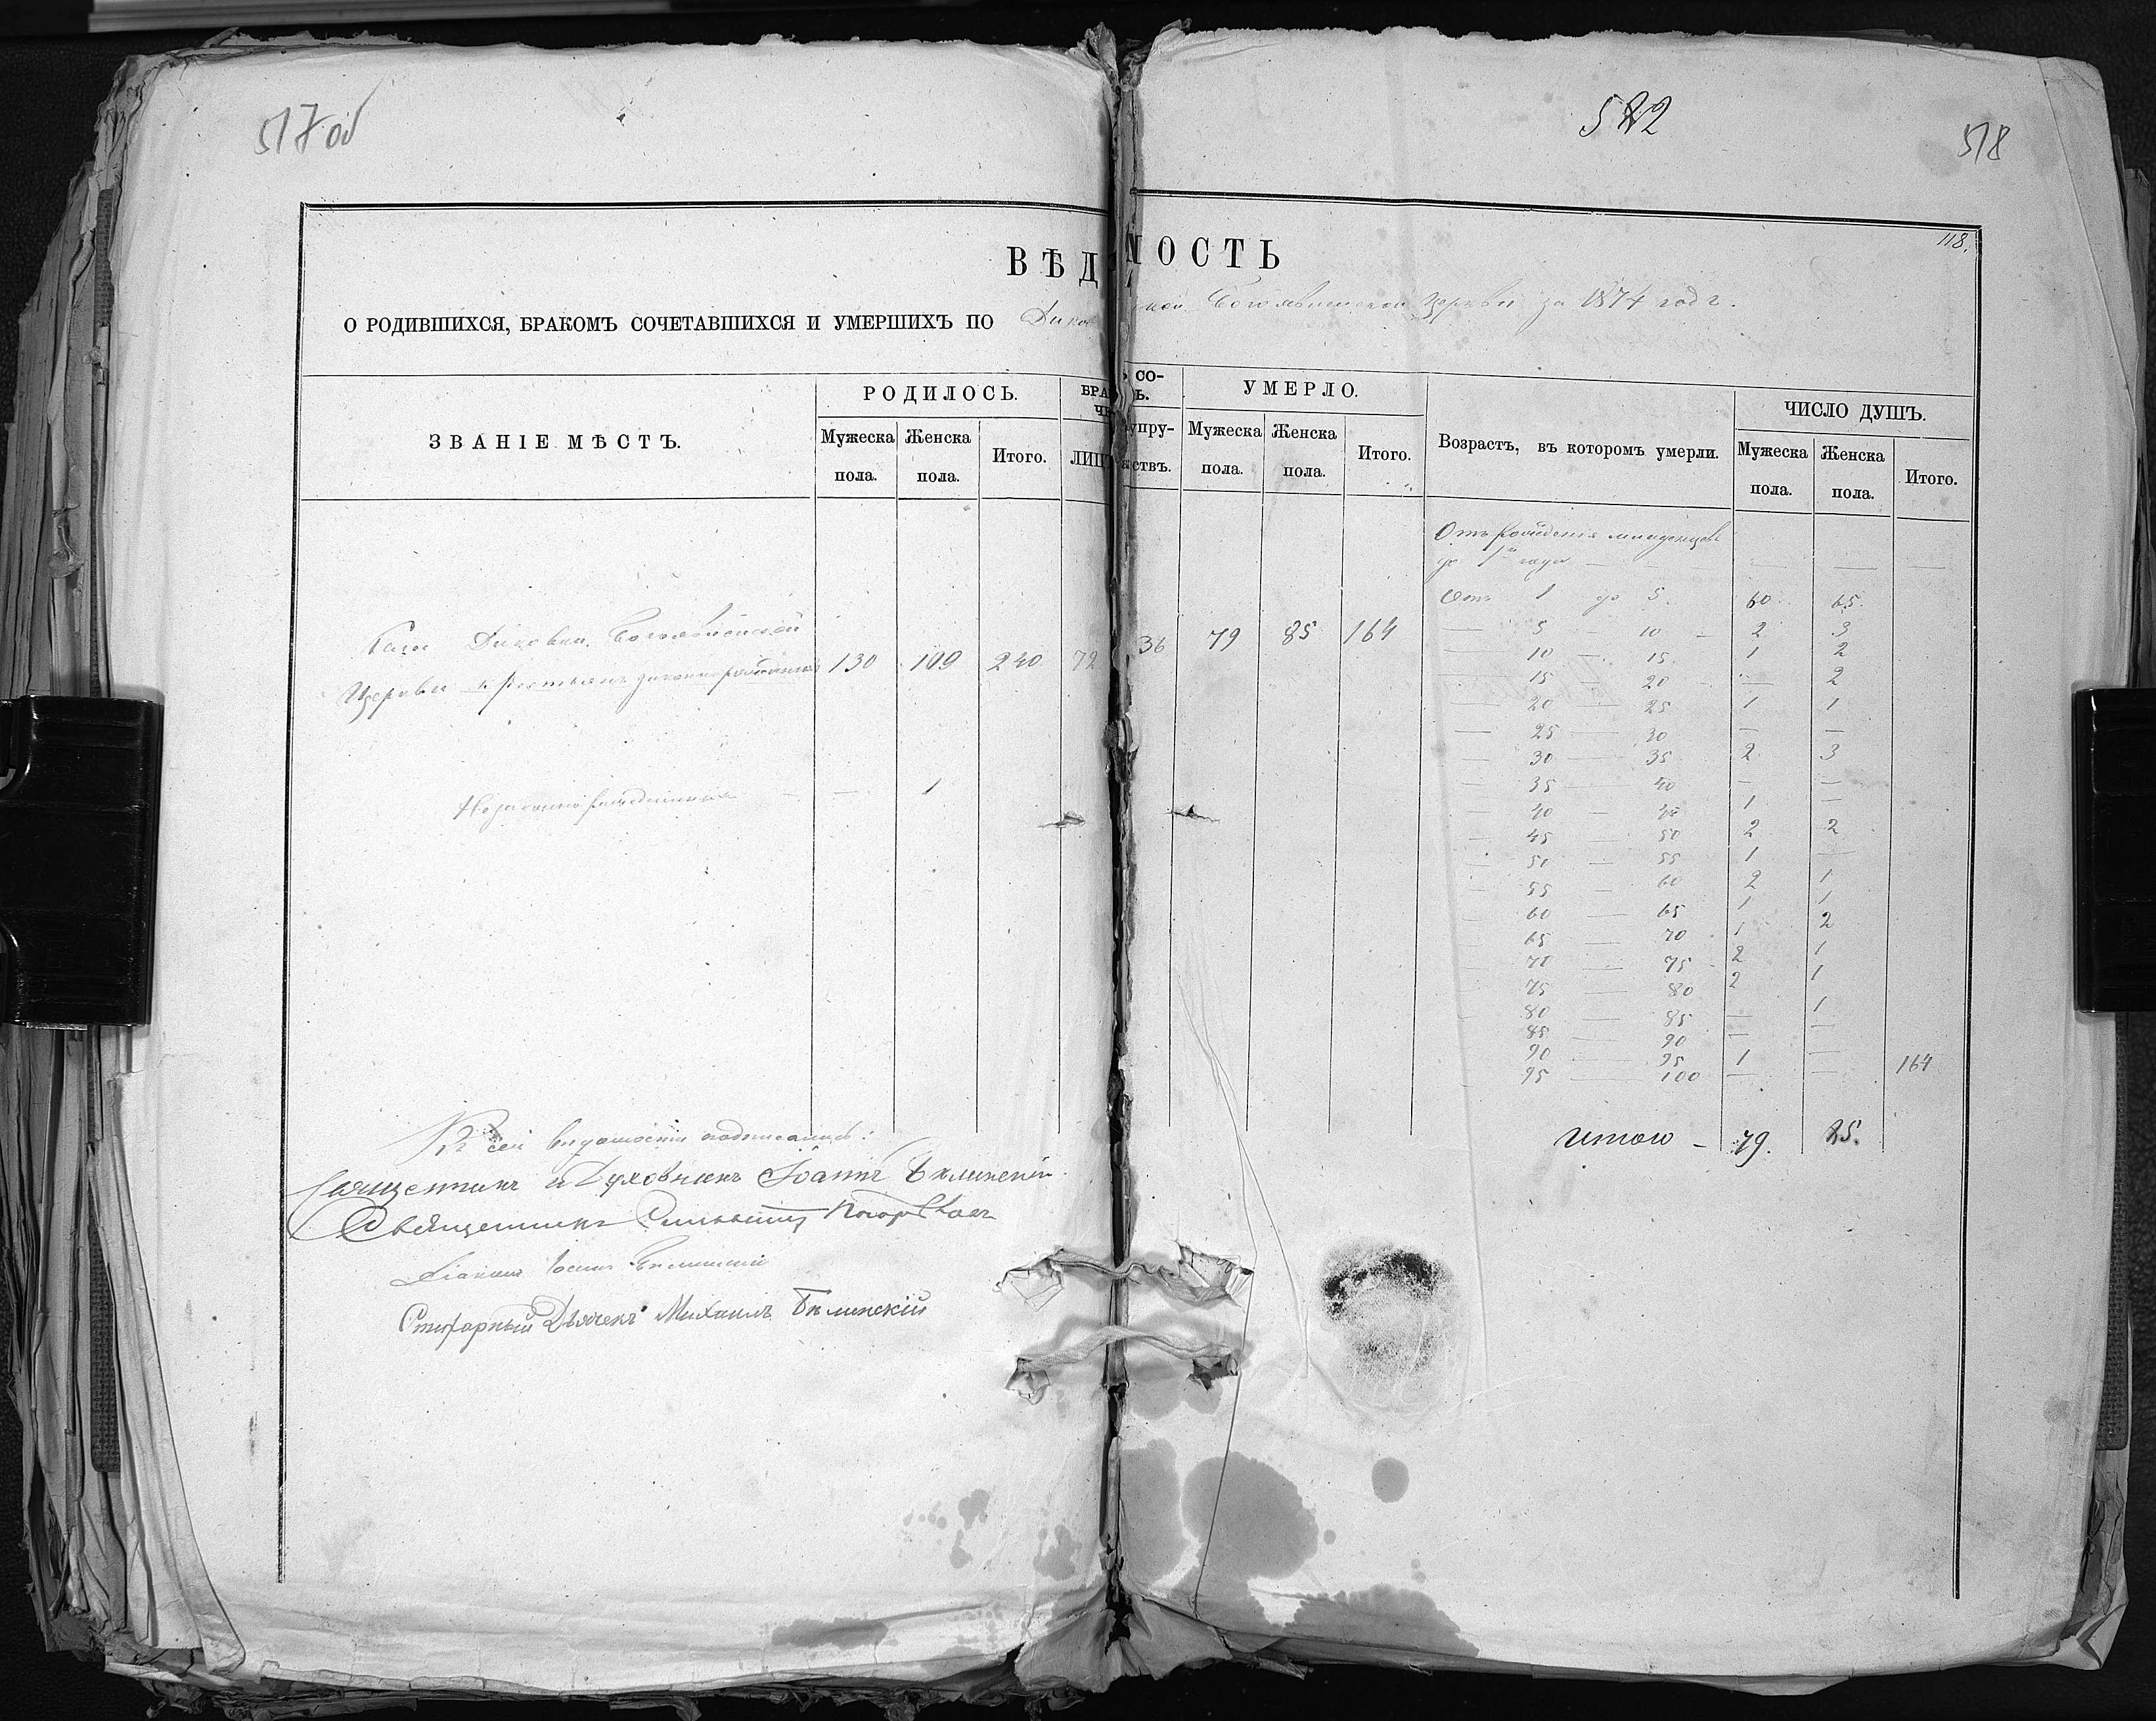 517об
522
518
118.
ВѢД МОСТЬ
О РОДИВШИХСЯ, БРАКОМЪ СОЧЕТАВШИХСЯ И УМЕРШИХЪ ПО Дико ской Богоявленской Церкви за 1874 годъ.
ЗВАНІЕ МѢСТЪ.
РОДИЛОСЬ.
Мужеска пола.
Женска пола.
Итого.
БРА СО-
ЧЕ Ь.
ЛИЦ
упру-
ствъ.
УМЕРЛО.
Мужеска пола.
Женска пола.
Итого.
Возрастъ, въ которомъ умерли.
ЧИСЛО ДУШЪ.
Мужеска пола.
Женска пола.
Итого.
Села Диковки Богоявленской
Церкви крестьянъ законнорожденныхъ 130 109 240 72 36 79 85 164
Незаконнорожденныхъ — — 1
Отъ рожденія младенцевъ
до 1го года — — — —
Отъ 1 до 5. 60 65.
— 5 — 10 — 2 3
— 10 — 15. 1 2
— 15 — 20 — — 2
— 20 — 25 1 1
— 25 — 30 — —
— 30 — 35 2 3
— 35 — 40 — —
— 40 — 45 1 —
— 45 — 50 2 2
— 50 — 55 1 —
— 55 — 60 2 1
— 60 — 65 1 1
— 65 — 70 1 2
— 70 — 75 2 1
— 75 — 80 2 1
— 80 — 85 — 1
85 — 90 — —
90 — 95 1 —
95 — 100 — — 164
Итого — 79. 85.
Къ сей вѣдомости подписались:
Священникъ и Духовникъ Іоаннъ Бѣлинскій
Священникъ
Діаконъ Іоаннъ Бѣлинскій
Стихарный Дьячекъ Михаилъ Бѣлинскій